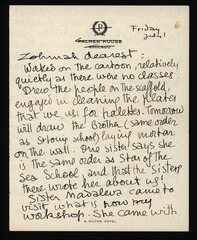 Friday
PALMER HOUSE
CHICAGO
Zohmah dearest-
Worked on the cartoon, relatively
quietly as there were no classes
Drew the people on the scaffold,
engaged in cleaning the plates
that we use for palettes. Tomorrow
will draw the Brothers, same order
as St Tomy school, laying mortar
on the wall. One sister says she
is the same order as Star of the
Sea School, and that the Sisters
there wrote her about us!
Sister Madaleva came to
visit what is now my
workshop. She came with
A HILTON HOTEL